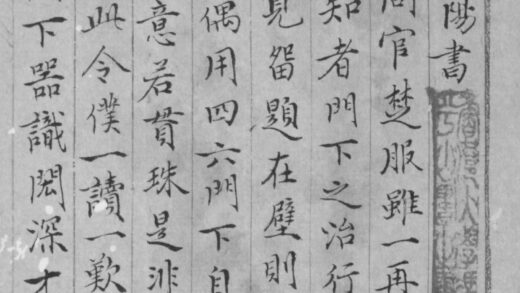 陽書
同官楚服雖一再
知者門下之治行
見留題在壁則
偶用四六門下自
意若貫珠是非
此令僕一讀一歎
下器識閎深才